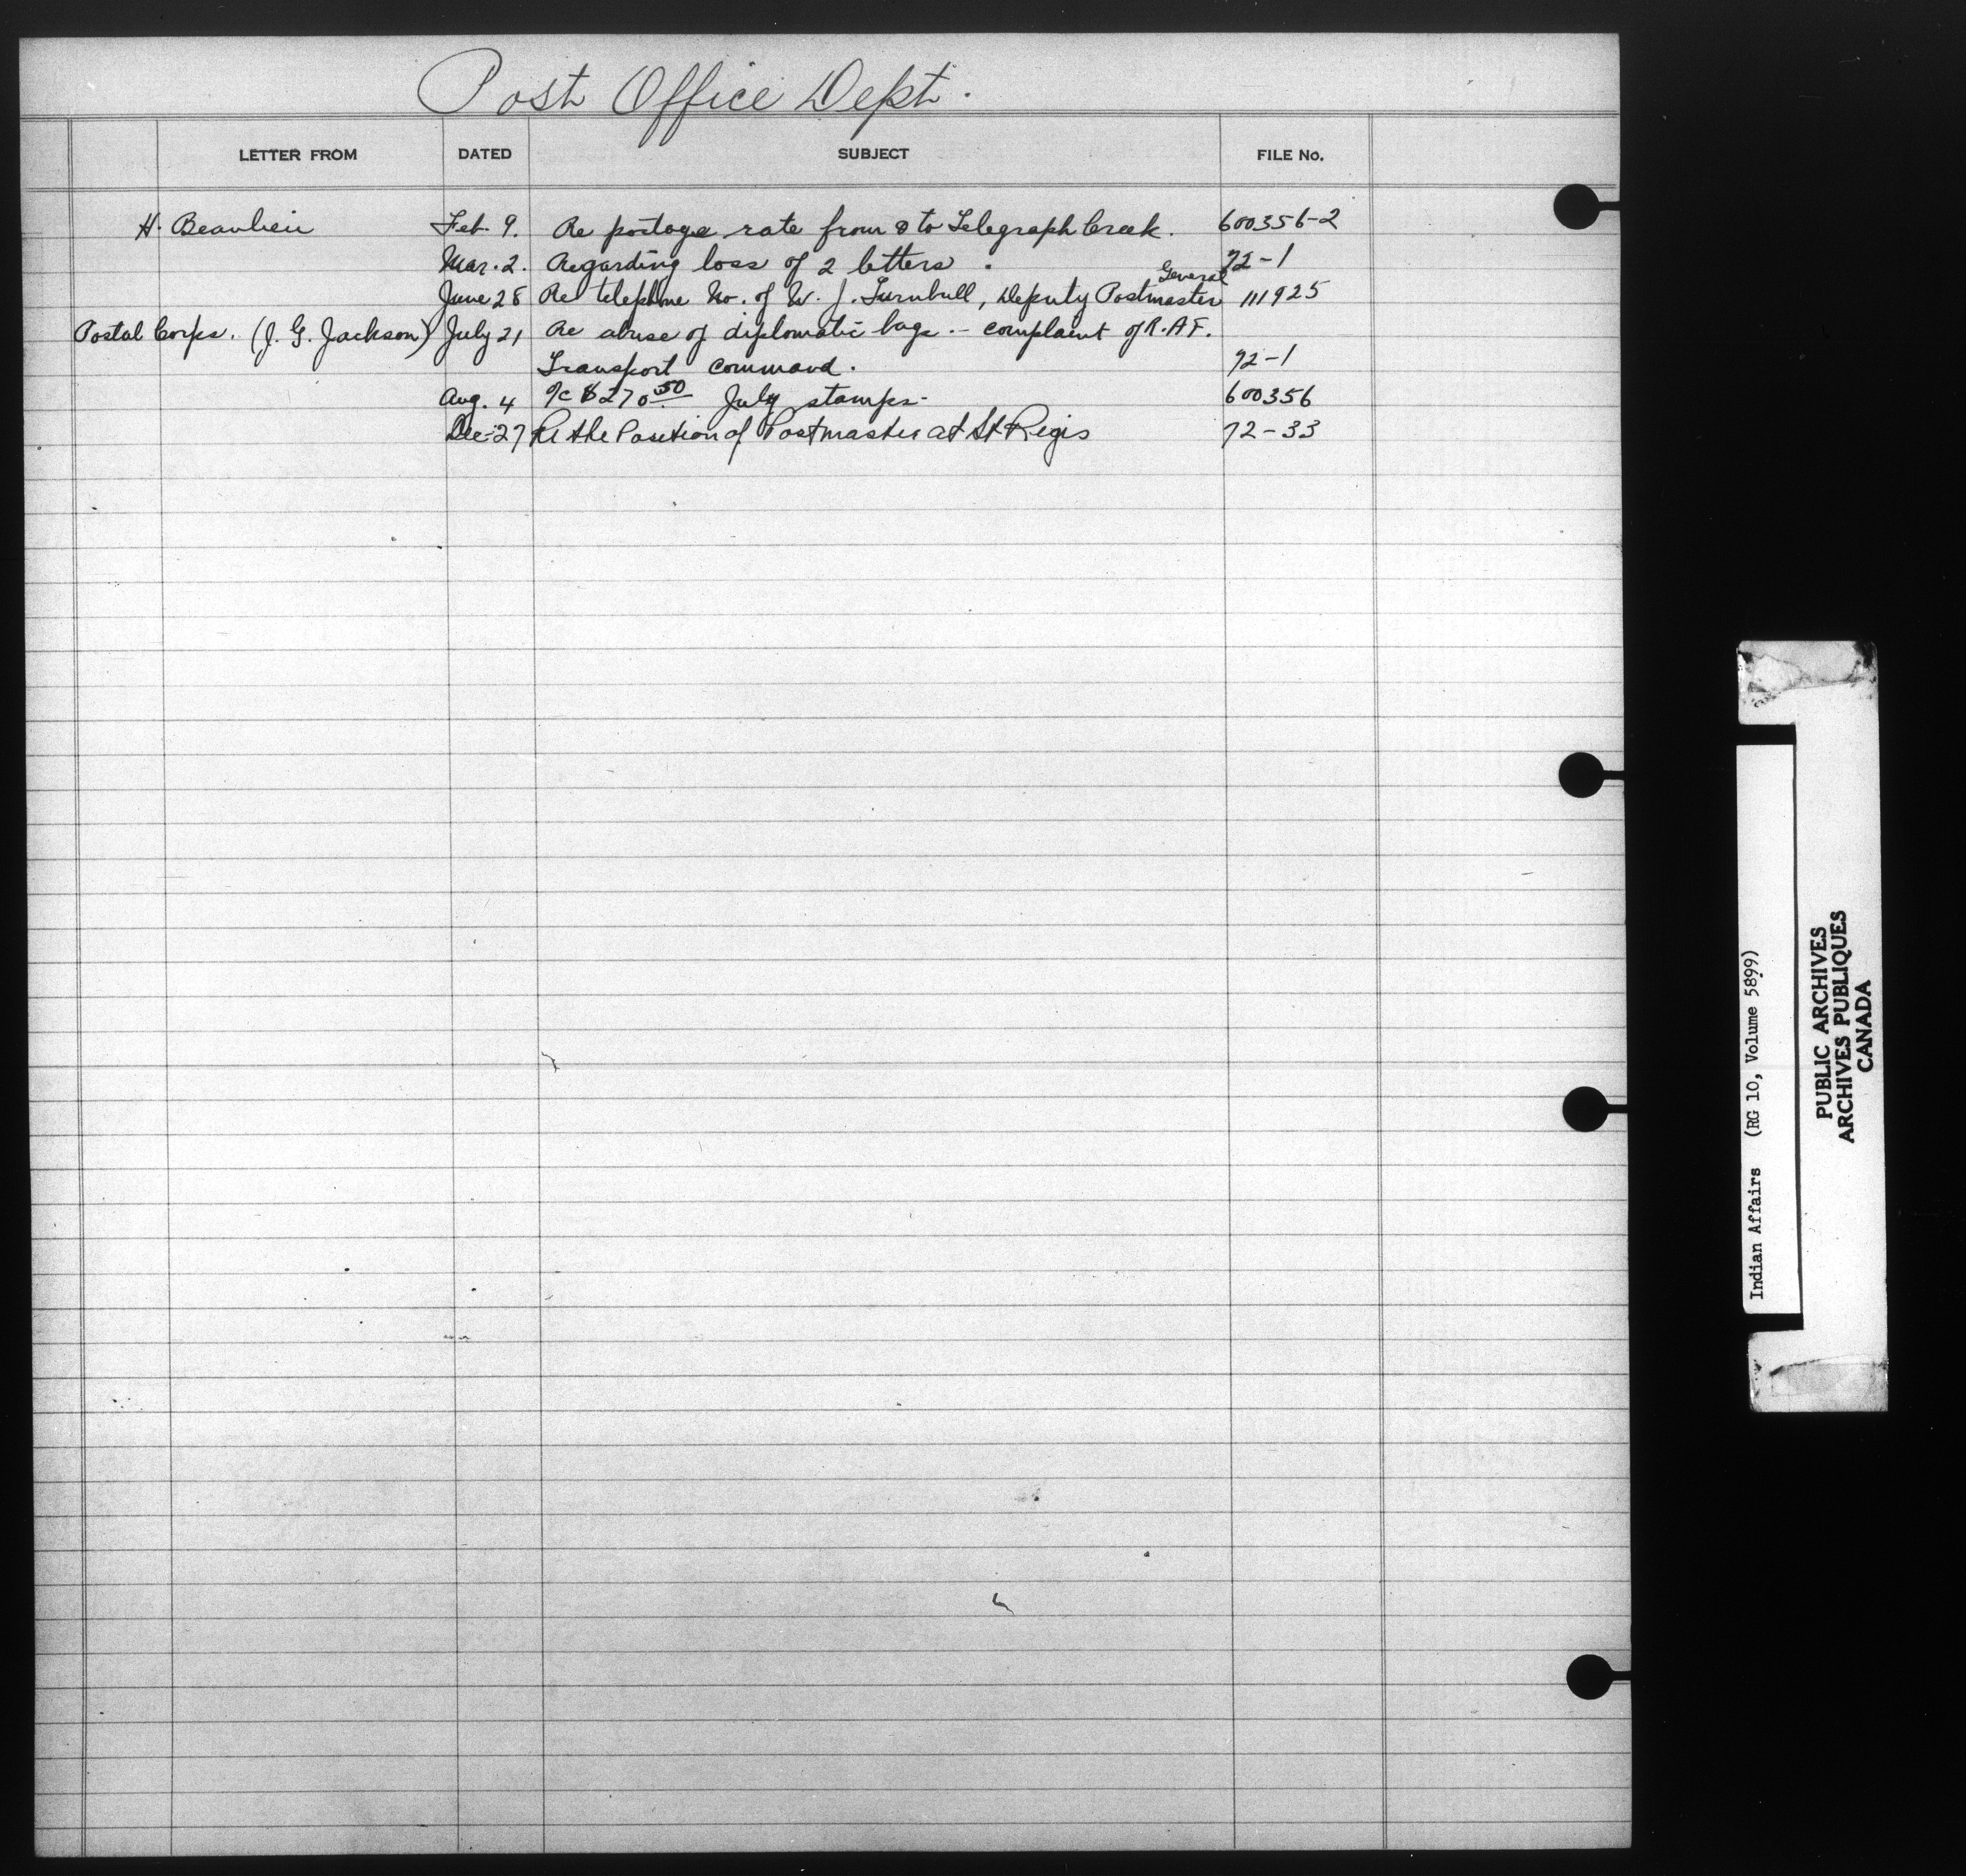 Post Office Dept.
LETTER FROM DATED SUBJECT FILE No.
H. Beaulieu Feb. 9. Re postage rate from & to Telegraph Creek. 600356-2
Mar. 2. Regarding loss of 2 letters. 72-1
General
June 28 Re telephone No. of W. J. Turnbull, Deputy Postmaster 111925
Postal Corps. (J. G. Jackson) July 21 Re abuse of diplomatic bags. - complaint of R.A.F.
Transport command. 72-1
Aug. 4 a/c $270.50 July stamps- 600356
Dec-27 Re the Position of Postmaster at St Regis 72-33
Indian Affairs (RG 10, Volume 5899)
PUBLIC ARCHIVES
ARCHIVES PUBLIQUES
CANADA